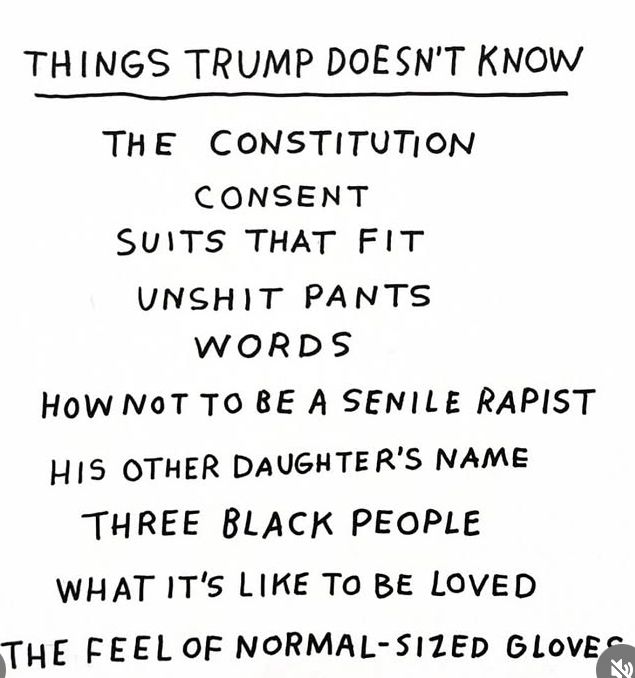 THINGS TRUMP DOESN'T KNOW
THE CONSTITUTION
CONSENT
SUITS THAT FIT
UNSHIT PANTS
WORDS
HOW NOT TO BE A SENILE RAPIST
HIS OTHER DAUGHTER'S NAME
THREE BLACK PEOPLE
WHAT IT'S LIKE TO BE LOVED
THE FEEL OF NORMAL-SIZED GLOVES